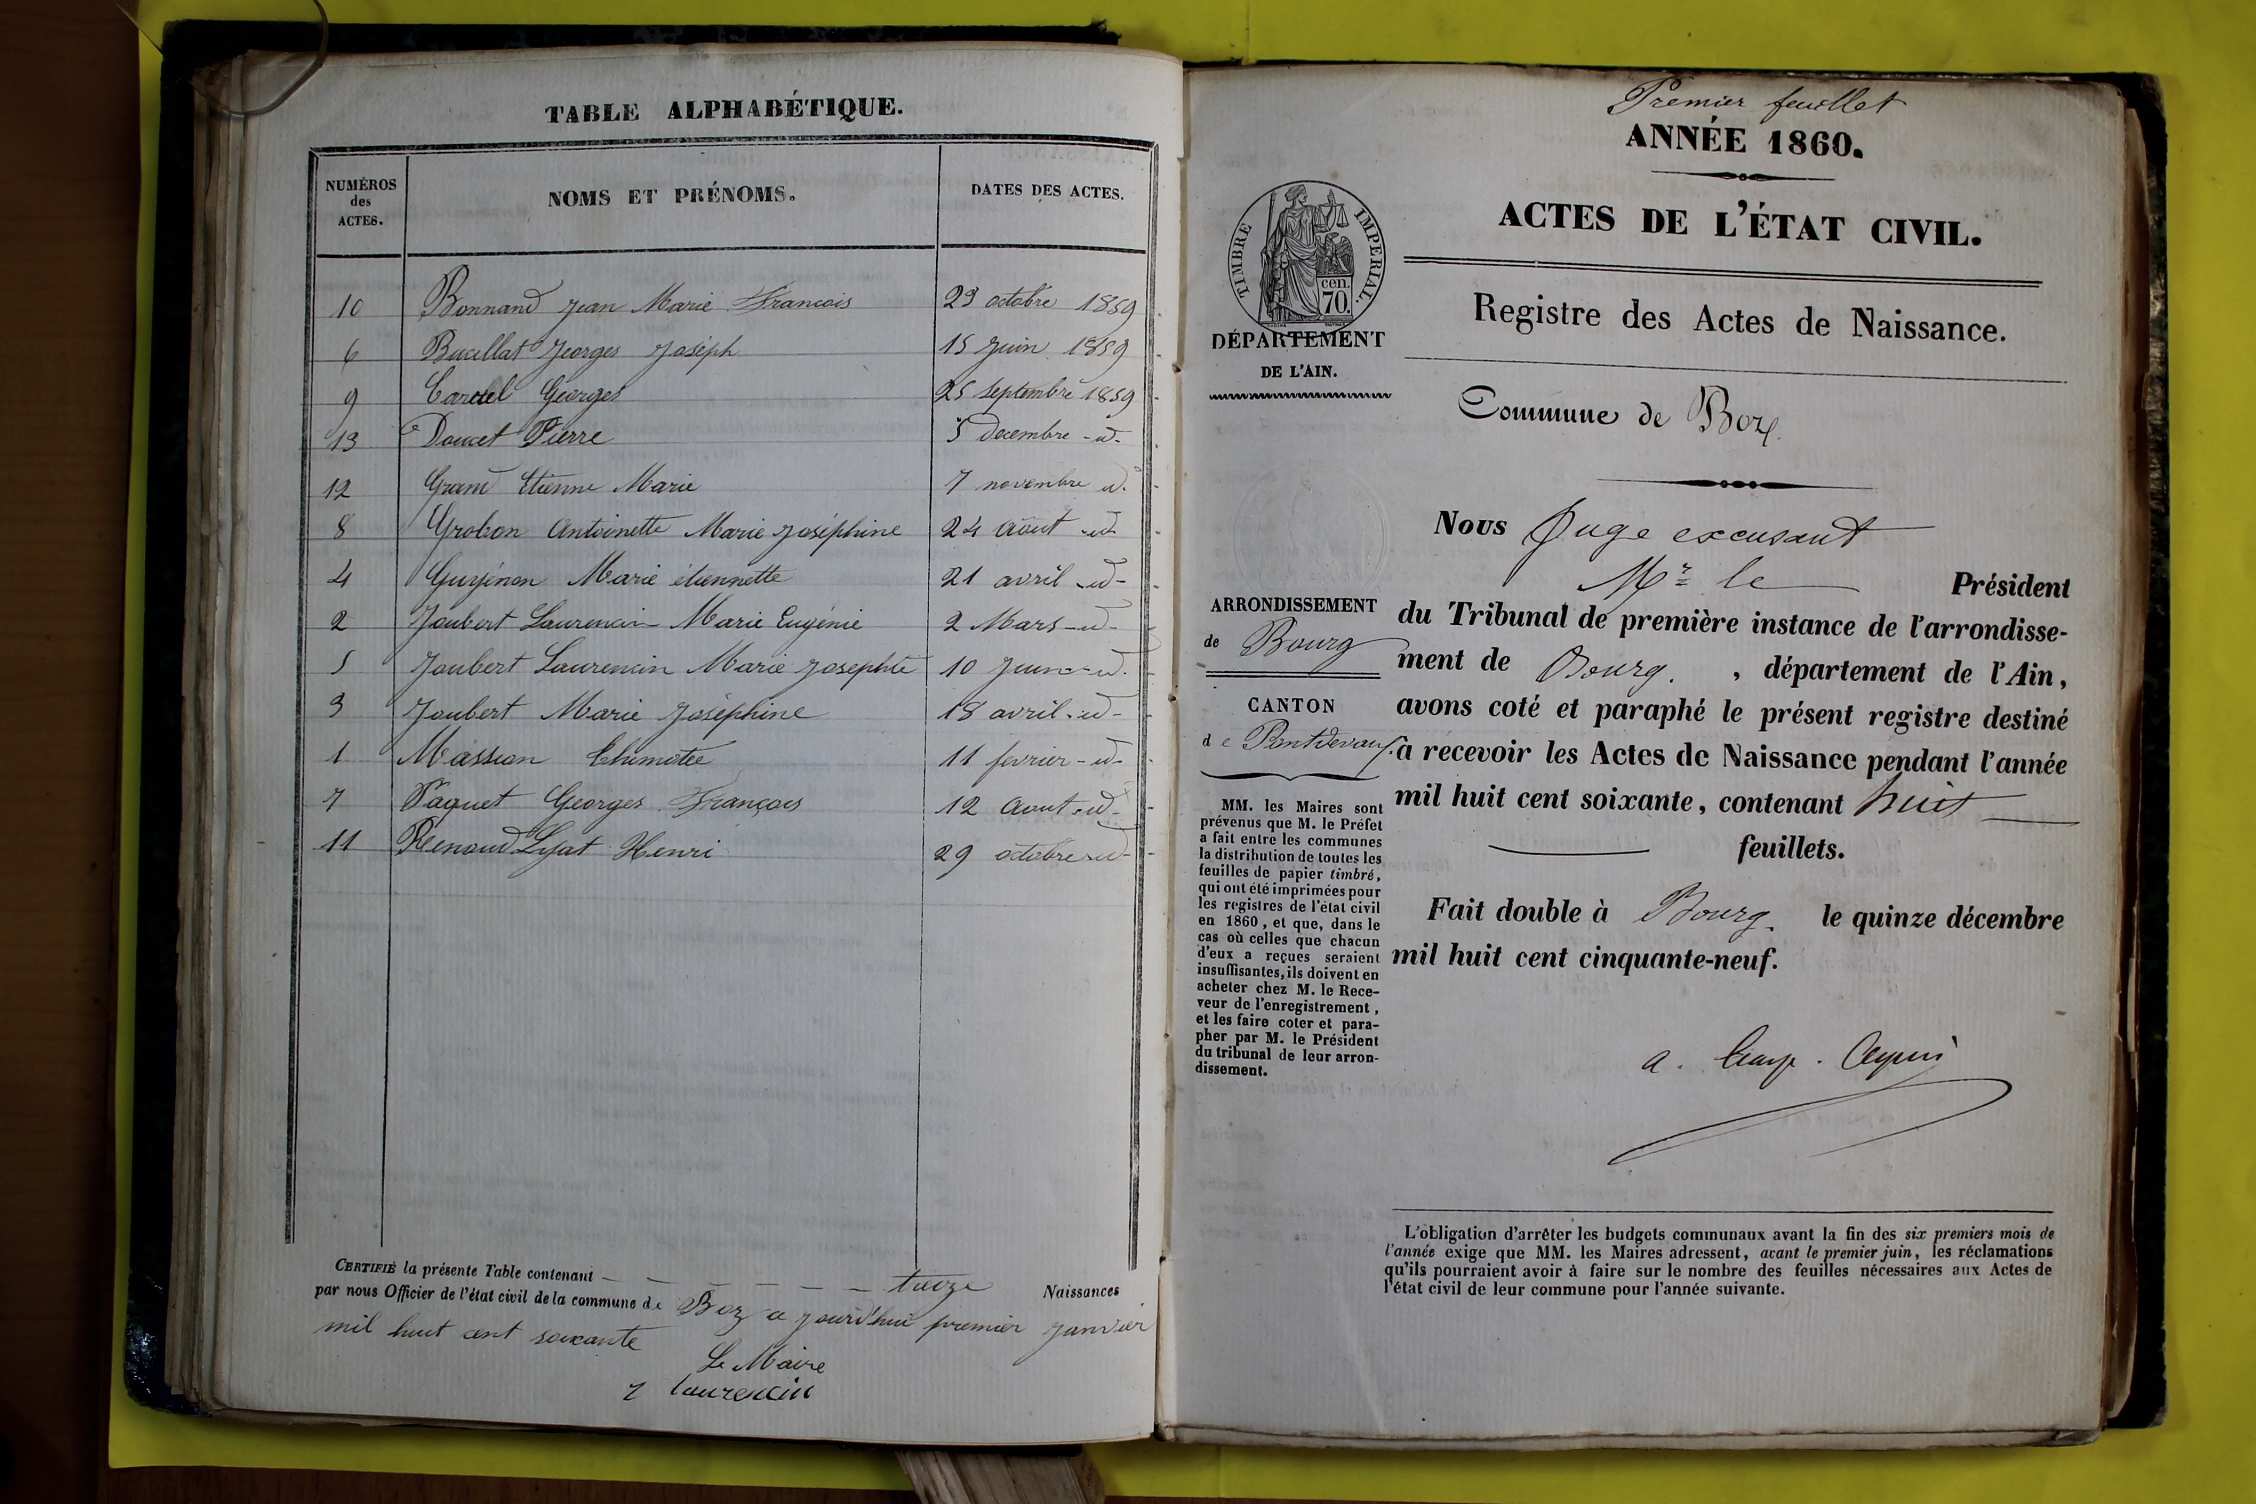 TABLE ALPHABÉTIQUE.
NUMÉROS des ACTES. NOMS ET PRÉNOMS. DATES DES ACTES.
10 Bonnand Jean Marie François 29 octobre 1859
6 Bucillat Georges Joseph 15 Juin 1859
9 Cardel Georges 25 Septembre 1859
13 Doucet Pierre 5 decembre -d-
12 Grand Etienne Marie 7 novembre d.
8 Grobon Antoinette Marie Joséphine 24 Aout -id-
4 Guyénon Marie étiennette 21 avril -id-
2 Joubert Laurencin Marie Eugénie 2 Mars -id-
5 Joubert Laurencin Marie Josephte 10 Juin -id-
3 Joubert Marie Joséphine 18 avril -id-
1 Massion Thimotée 11 fevrier -id-
7 Paquet Georges François 12 Aout -id-
11 Renoud Lyat Henri 29 octobre -id-
CERTIFIÉ la présente Table contenant treize Naissances
par nous Officier de l'état civil de la commune de Boz ce jourd'hui premier janvier
mil huit cent soixante
Le Maire
J Laurencin
Premier feuillet
ANNÉE 1860.
ACTES DE L'ÉTAT CIVIL.
TIMBRE IMPERIAL.
cen.
70.
DÉPARTEMENT
DE L'AIN.
Registre des Actes de Naissance.
Commune de Boz.
Nous Juge excusant
Mr le Président
du Tribunal de première instance de l'arrondisse-
ment de Bourg. , département de l'Ain,
avons coté et paraphé le présent registre destiné
à recevoir les Actes de Naissance pendant l'année
mil huit cent soixante, contenant huit
feuillets.
Fait double à Bourg. le quinze décembre
mil huit cent cinquante-neuf.
ARRONDISSEMENT
de Bourg
CANTON
de Pontdevaux.
MM. les Maires sont
prévenus que M. le Préfet
a fait entre les communes
la distribution de toutes les
feuilles de papier timbré,
qui ont été imprimées pour
les registres de l'état civil
en 1860, et que, dans le
cas où celles que chacun
d'eux a reçues seraient
insuffisantes, ils doivent en
acheter chez M. le Rece-
veur de l'enregistrement,
et les faire coter et para-
pher par M. le Président
du tribunal de leur arron-
dissement.
L'obligation d'arrêter les budgets communaux avant la fin des six premiers mois de
l'année exige que MM. les Maires adressent, avant le premier juin, les réclamations
qu'ils pourraient avoir à faire sur le nombre des feuilles nécessaires aux Actes de
l'état civil de leur commune pour l'année suivante.